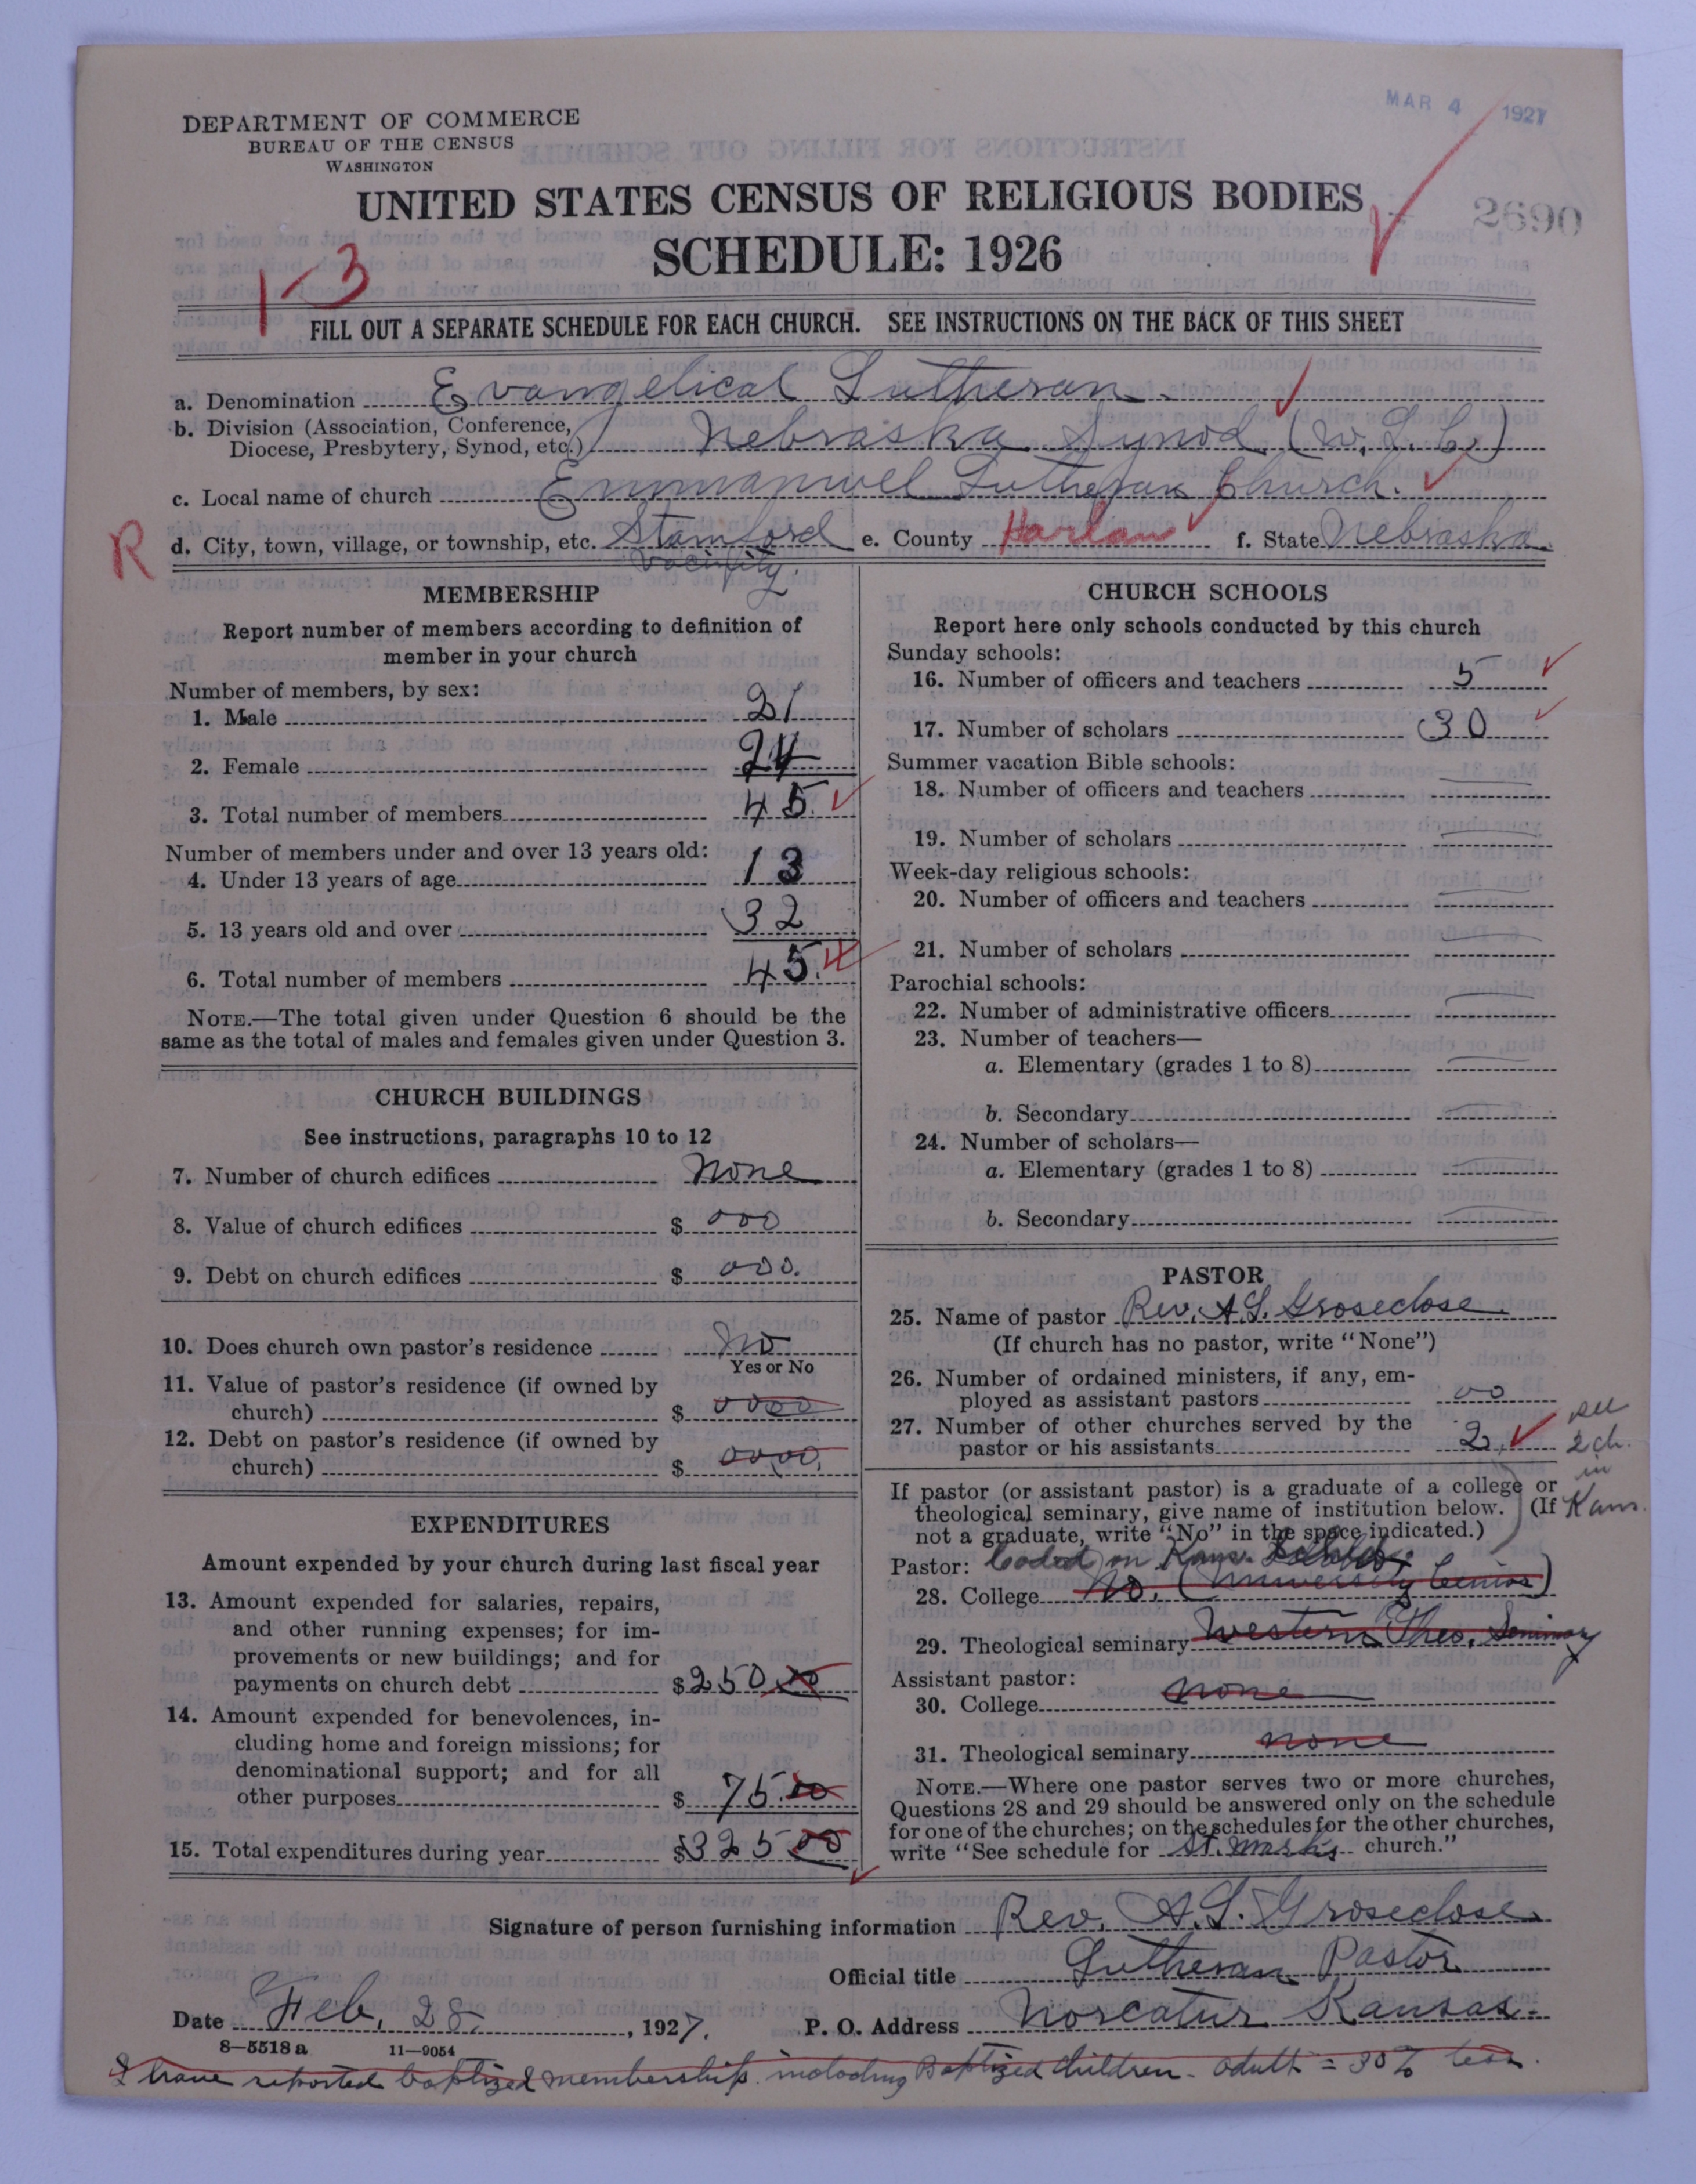 MAR 4 1927
DEPARTMENT OF COMMERCE
BUREAU OF THE CENSUS
WASHINGTON
UNITED STATES CENSUS OF RELIGIOUS BODIES
2690
SCHEDULE: 1926
1-3
FILL OUT A SEPARATE SCHEDULE FOR EACH CHURCH. SEE INSTRUCTIONS ON THE BACK OF THIS SHEET
a. Denomination Evangelical Lutheran
b. Division (Association, Conference,
Diocese, Presbytery, Synod, etc.) Nebraska Synod (U.L.C.)
c. Local name of church Emmanuel Lutheran Church.
R
d. City, town, village, or township, etc. Stamford e. County Harlan f. State Nebraska
vacinity.
MEMBERSHIP
Report number of members according to definition of
member in your church
Number of members, by sex:
1. Male 21
2. Female 24
3. Total number of members 45
Number of members under and over 13 years old:
4. Under 13 years of age 13
5. 13 years old and over 32
6. Total number of members 45.
NOTE.—The total given under Question 6 should be the
same as the total of males and females given under Question 3.
CHURCH BUILDINGS
See instructions, paragraphs 10 to 12
7. Number of church edifices none
8. Value of church edifices $ 000
9. Debt on church edifices $ 000.
10. Does church own pastor's residence no
Yes or No
11. Value of pastor's residence (if owned by
church) $ 0000
12. Debt on pastor's residence (if owned by
church) $ 0000.
EXPENDITURES
Amount expended by your church during last fiscal year
13. Amount expended for salaries, repairs,
and other running expenses; for im-
provements or new buildings; and for
payments on church debt $250.00
14. Amount expended for benevolences, in-
cluding home and foreign missions; for
denominational support; and for all
other purposes $ 75.00
15. Total expenditures during year $325.00
CHURCH SCHOOLS
Report here only schools conducted by this church
Sunday schools:
16. Number of officers and teachers 5
17. Number of scholars 30
Summer vacation Bible schools:
18. Number of officers and teachers
19. Number of scholars
Week-day religious schools:
20. Number of officers and teachers
21. Number of scholars
Parochial schools:
22. Number of administrative officers
23. Number of teachers—
a. Elementary (grades 1 to 8)
b. Secondary
24. Number of scholars—
a. Elementary (grades 1 to 8)
b. Secondary
PASTOR
25. Name of pastor Rev. A.L. Groseclose
(If church has no pastor, write "None")
26. Number of ordained ministers, if any, em-
ployed as assistant pastors 00
27. Number of other churches served by the
pastor or his assistants 2.
see
2 ch.
in
Kans.
If pastor (or assistant pastor) is a graduate of a college or
theological seminary, give name of institution below. (If
not a graduate, write "No" in the space indicated.)
Pastor: Coded on Kans.
28. College No. (University Senior)
29. Theological seminary Western Theo. Seminary
Assistant pastor:
30. College none
31. Theological seminary none
NOTE.—Where one pastor serves two or more churches,
Questions 28 and 29 should be answered only on the schedule
for one of the churches; on the schedules for the other churches,
write "See schedule for St. Marks church."
Signature of person furnishing information Rev. A.L. Groseclose
Official title Lutheran Pastor
Date Feb. 28, 1927. P. O. Address Norcatur Kansas.
8—5518 a 11—9054
I have reported baptized membership. including Baptized Children - adult = 30% less.